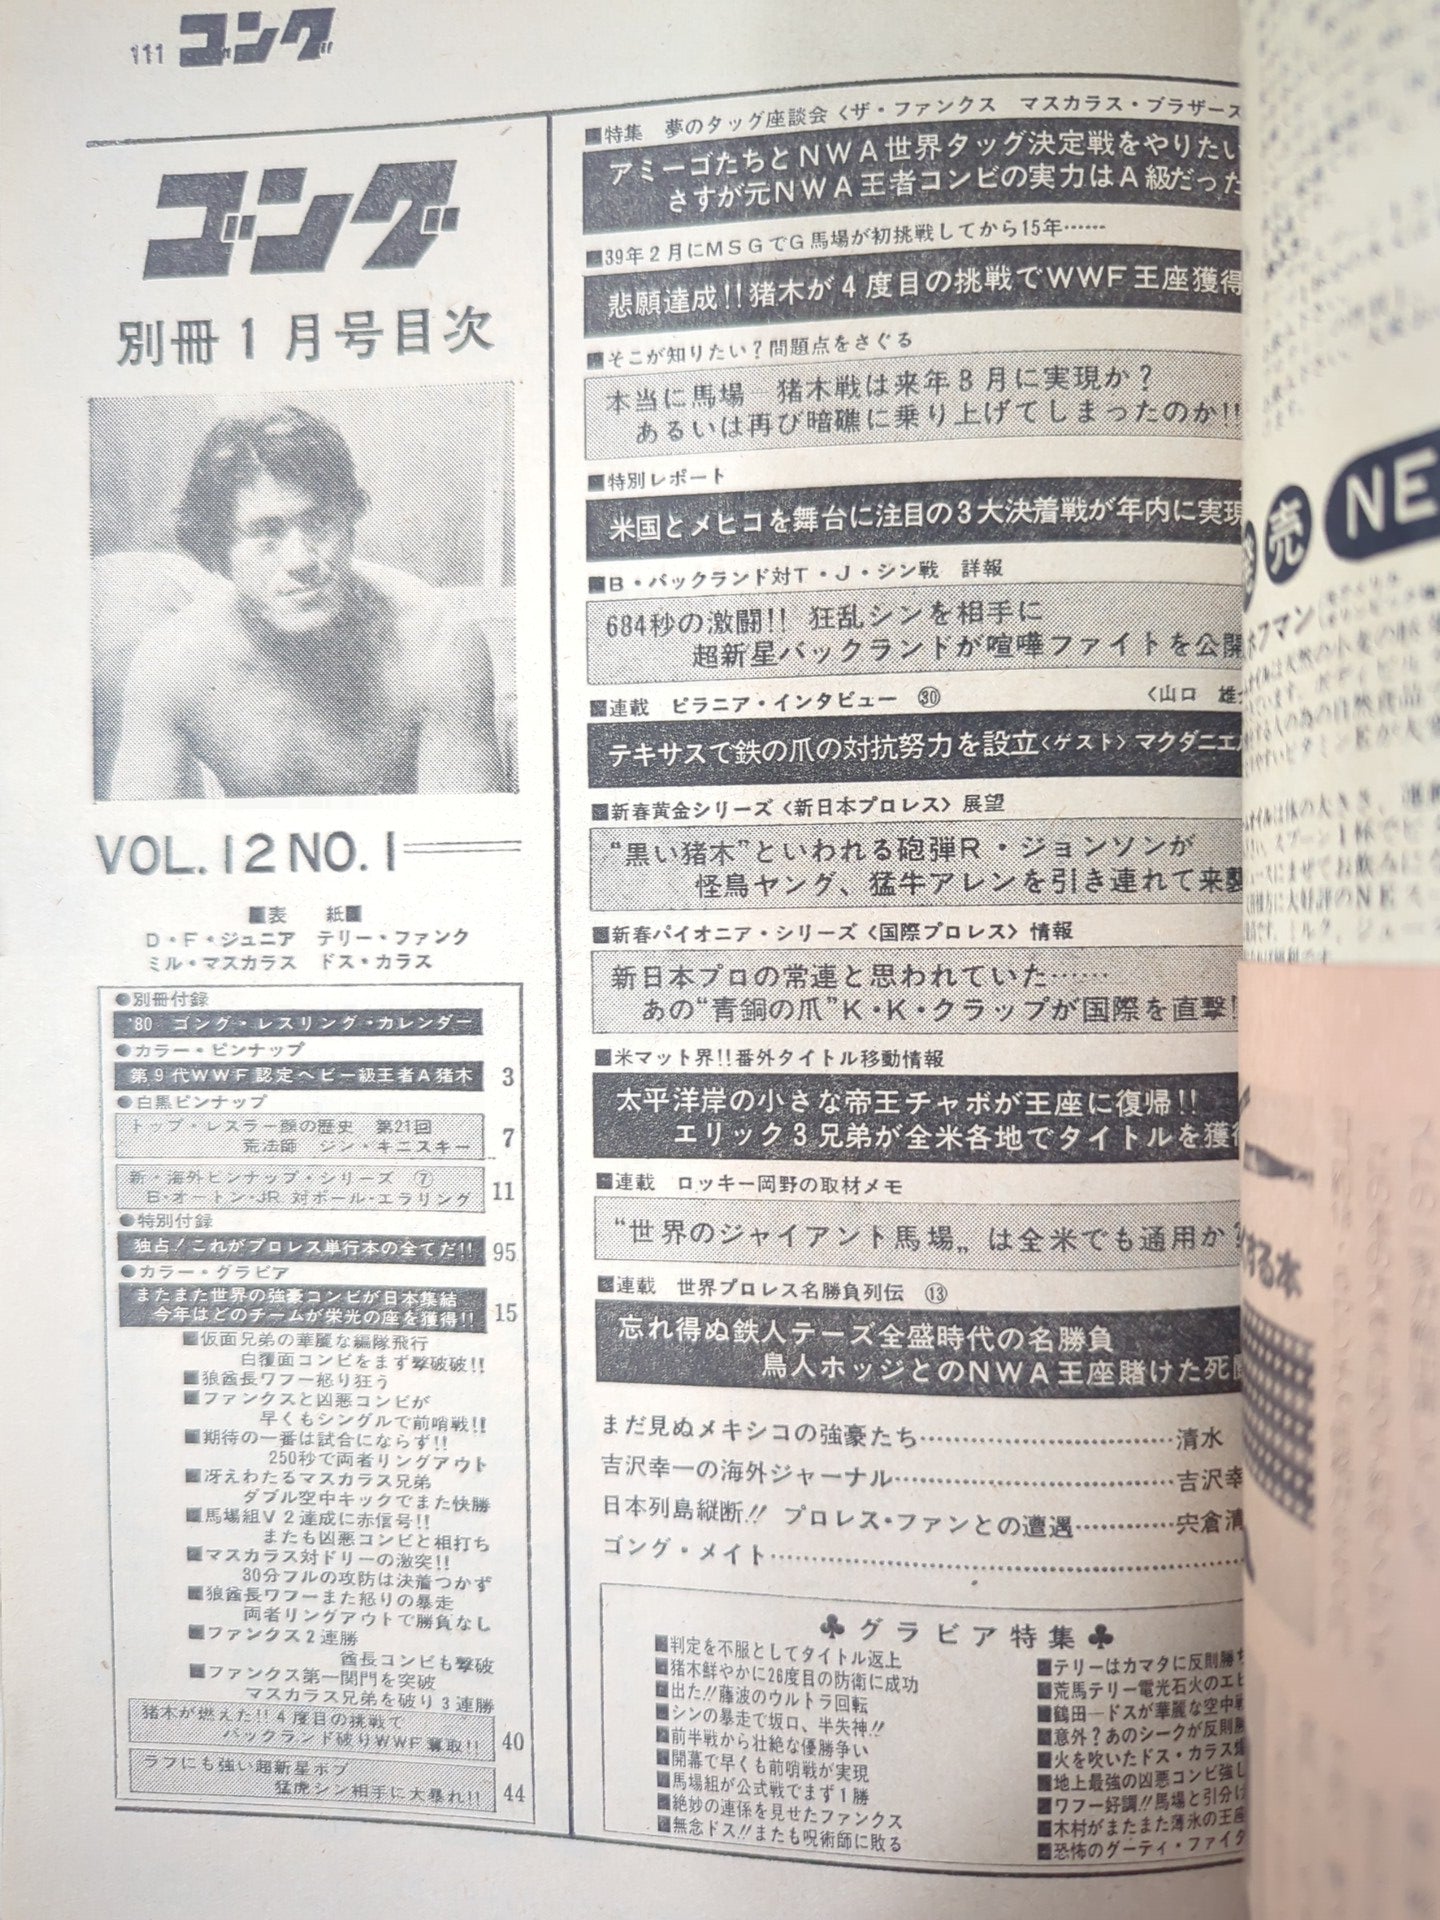 111 ゴング
ゴング
別冊1月号目次
VOL.12 NO.1
■表 紙■
D・F・ジュニア テリー・ファンク
ミル・マスカラス ドス・カラス
●別冊付録
'80 ゴング・レスリング・カレンダー
●カラー・ピンナップ
第9代WWF認定ヘビー級王者A猪木 3
●白黒ピンナップ
トップ・レスラー顔の歴史 第21回
荒法師 ジン・キニスキー 7
新・海外ピンナップ・シリーズ ⑦
B・オートン・JR 対ポール・エラリング 11
●特別付録
独占!これがプロレス単行本の全てだ!! 95
●カラー・グラビア
またまた世界の強豪コンビが日本集結
今年はどのチームが栄光の座を獲得!! 15
■仮面兄弟の華麗な編隊飛行
白覆面コンビをまず撃破破!!
■狼酋長ワフー怒り狂う
■ファンクスと凶悪コンビが
早くもシングルで前哨戦!!
■期待の一番は試合にならず!!
250秒で両者リングアウト
■冴えわたるマスカラス兄弟
ダブル空中キックでまた快勝
■馬場組V2達成に赤信号!!
またも凶悪コンビと相打ち
■マスカラス対ドリーの激突!!
30分フルの攻防は決着つかず
■狼酋長ワフーまた怒りの暴走
両者リングアウトで勝負なし
■ファンクス2連勝
酋長コンビも撃破
■ファンクス第一関門を突破
マスカラス兄弟を破り3連勝
猪木が燃えた!!4度目の挑戦で
バックランド破りWWF奪取!! 40
ラフにも強い超新星ボブ
猛虎シン相手に大暴れ!! 44
■特集 夢のタッグ座談会〈ザ・ファンクス マスカラス・ブラザーズ
アミーゴたちとNWA世界タッグ決定戦をやりたい
さすが元NWA王者コンビの実力はA級だった
■39年2月にMSGでG馬場が初挑戦してから15年……
悲願達成!!猪木が4度目の挑戦でWWF王座獲得
■そこが知りたい?問題点をさぐる
本当に馬場―猪木戦は来年8月に実現か?
あるいは再び暗礁に乗り上げてしまったのか!!
■特別レポート
米国とメヒコを舞台に注目の3大決着戦が年内に実現
■B・バックランド対T・J・シン戦 詳報
684秒の激闘!! 狂乱シンを相手に
超新星バックランドが喧嘩ファイトを公開
■連載 ピラニア・インタビュー ㉚ 〈山口 雄
テキサスで鉄の爪の対抗努力を設立〈ゲスト〉マクダニエル
■新春黄金シリーズ〈新日本プロレス〉展望
“黒い猪木”といわれる砲弾R・ジョンソンが
怪鳥ヤング、猛牛アレンを引き連れて来襲
■新春パイオニア・シリーズ〈国際プロレス〉情報
新日本プロの常連と思われていた……
あの“青銅の爪”K・K・クラップが国際を直撃!
■米マット界!!番外タイトル移動情報
太平洋岸の小さな帝王チャボが王座に復帰!!
エリック3兄弟が全米各地でタイトルを獲得
■連載 ロッキー岡野の取材メモ
“世界のジャイアント馬場„は全米でも通用か?
■連載 世界プロレス名勝負列伝 ⑬
忘れ得ぬ鉄人テーズ全盛時代の名勝負
鳥人ホッジとのNWA王座賭けた死闘
まだ見ぬメキシコの強豪たち……………………清水
吉沢幸一の海外ジャーナル……………………吉沢幸
日本列島縦断!! プロレス・ファンとの遭遇…………宍倉清
ゴング・メイト……………………………………
♣グラビア特集♣
■判定を不服としてタイトル返上
■猪木鮮やかに26度目の防衛に成功
■出た!!藤波のウルトラ回転
■シンの暴走で坂口、半失神!!
■前半戦から壮絶な優勝争い
■開幕で早くも前哨戦が実現
■馬場組が公式戦でまず1勝
■絶妙の連係を見せたファンクス
■無念ドス!!またも呪術師に敗る
■テリーはカマタに反則勝ち
■荒馬テリー電光石火のエビ
■鶴田―ドスが華麗な空中戦
■意外?あのシークが反則勝
■火を吹いたドス・カラス
■地上最強の凶悪コンビ強し
■ワフー好調!!馬場と引分け
■木村がまたまた薄氷の王座
■恐怖のグーティ・ファイタ
売 NE
ホフマン
する本